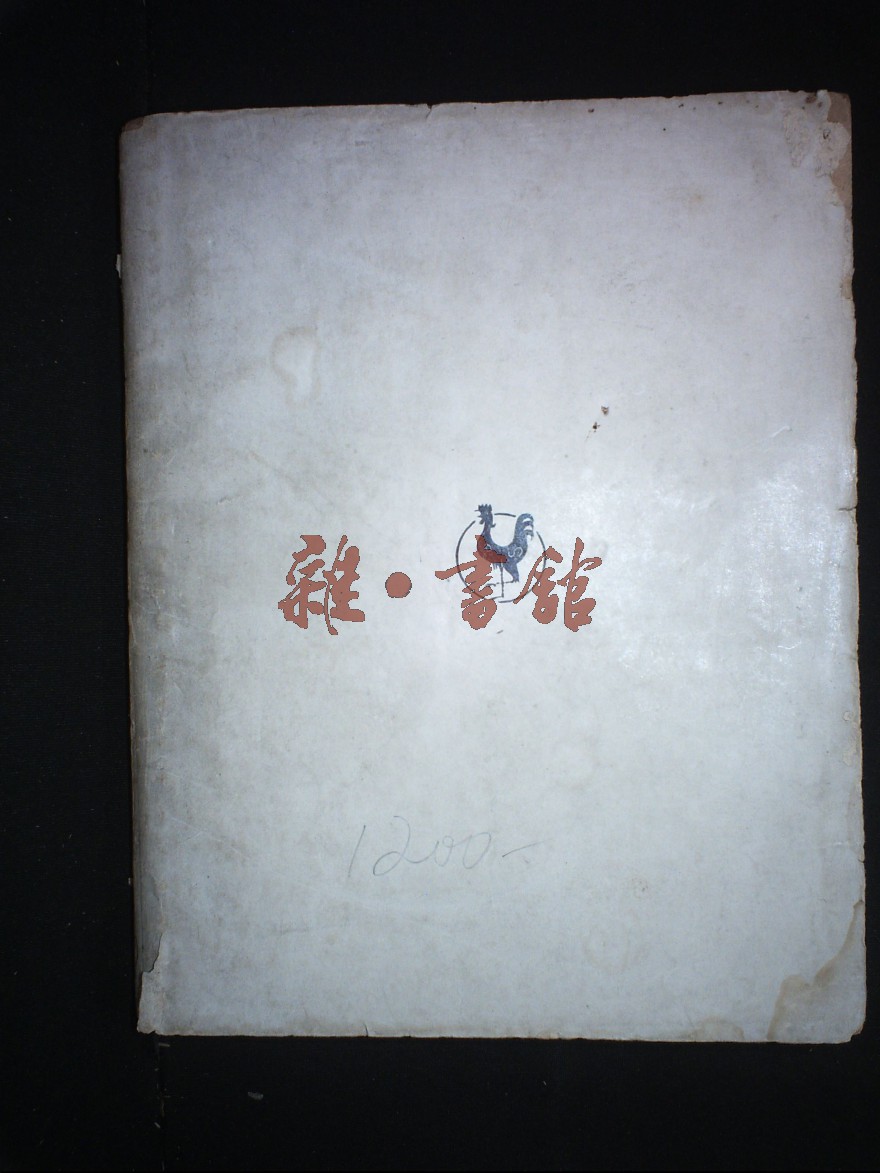 雜·書館
1200-